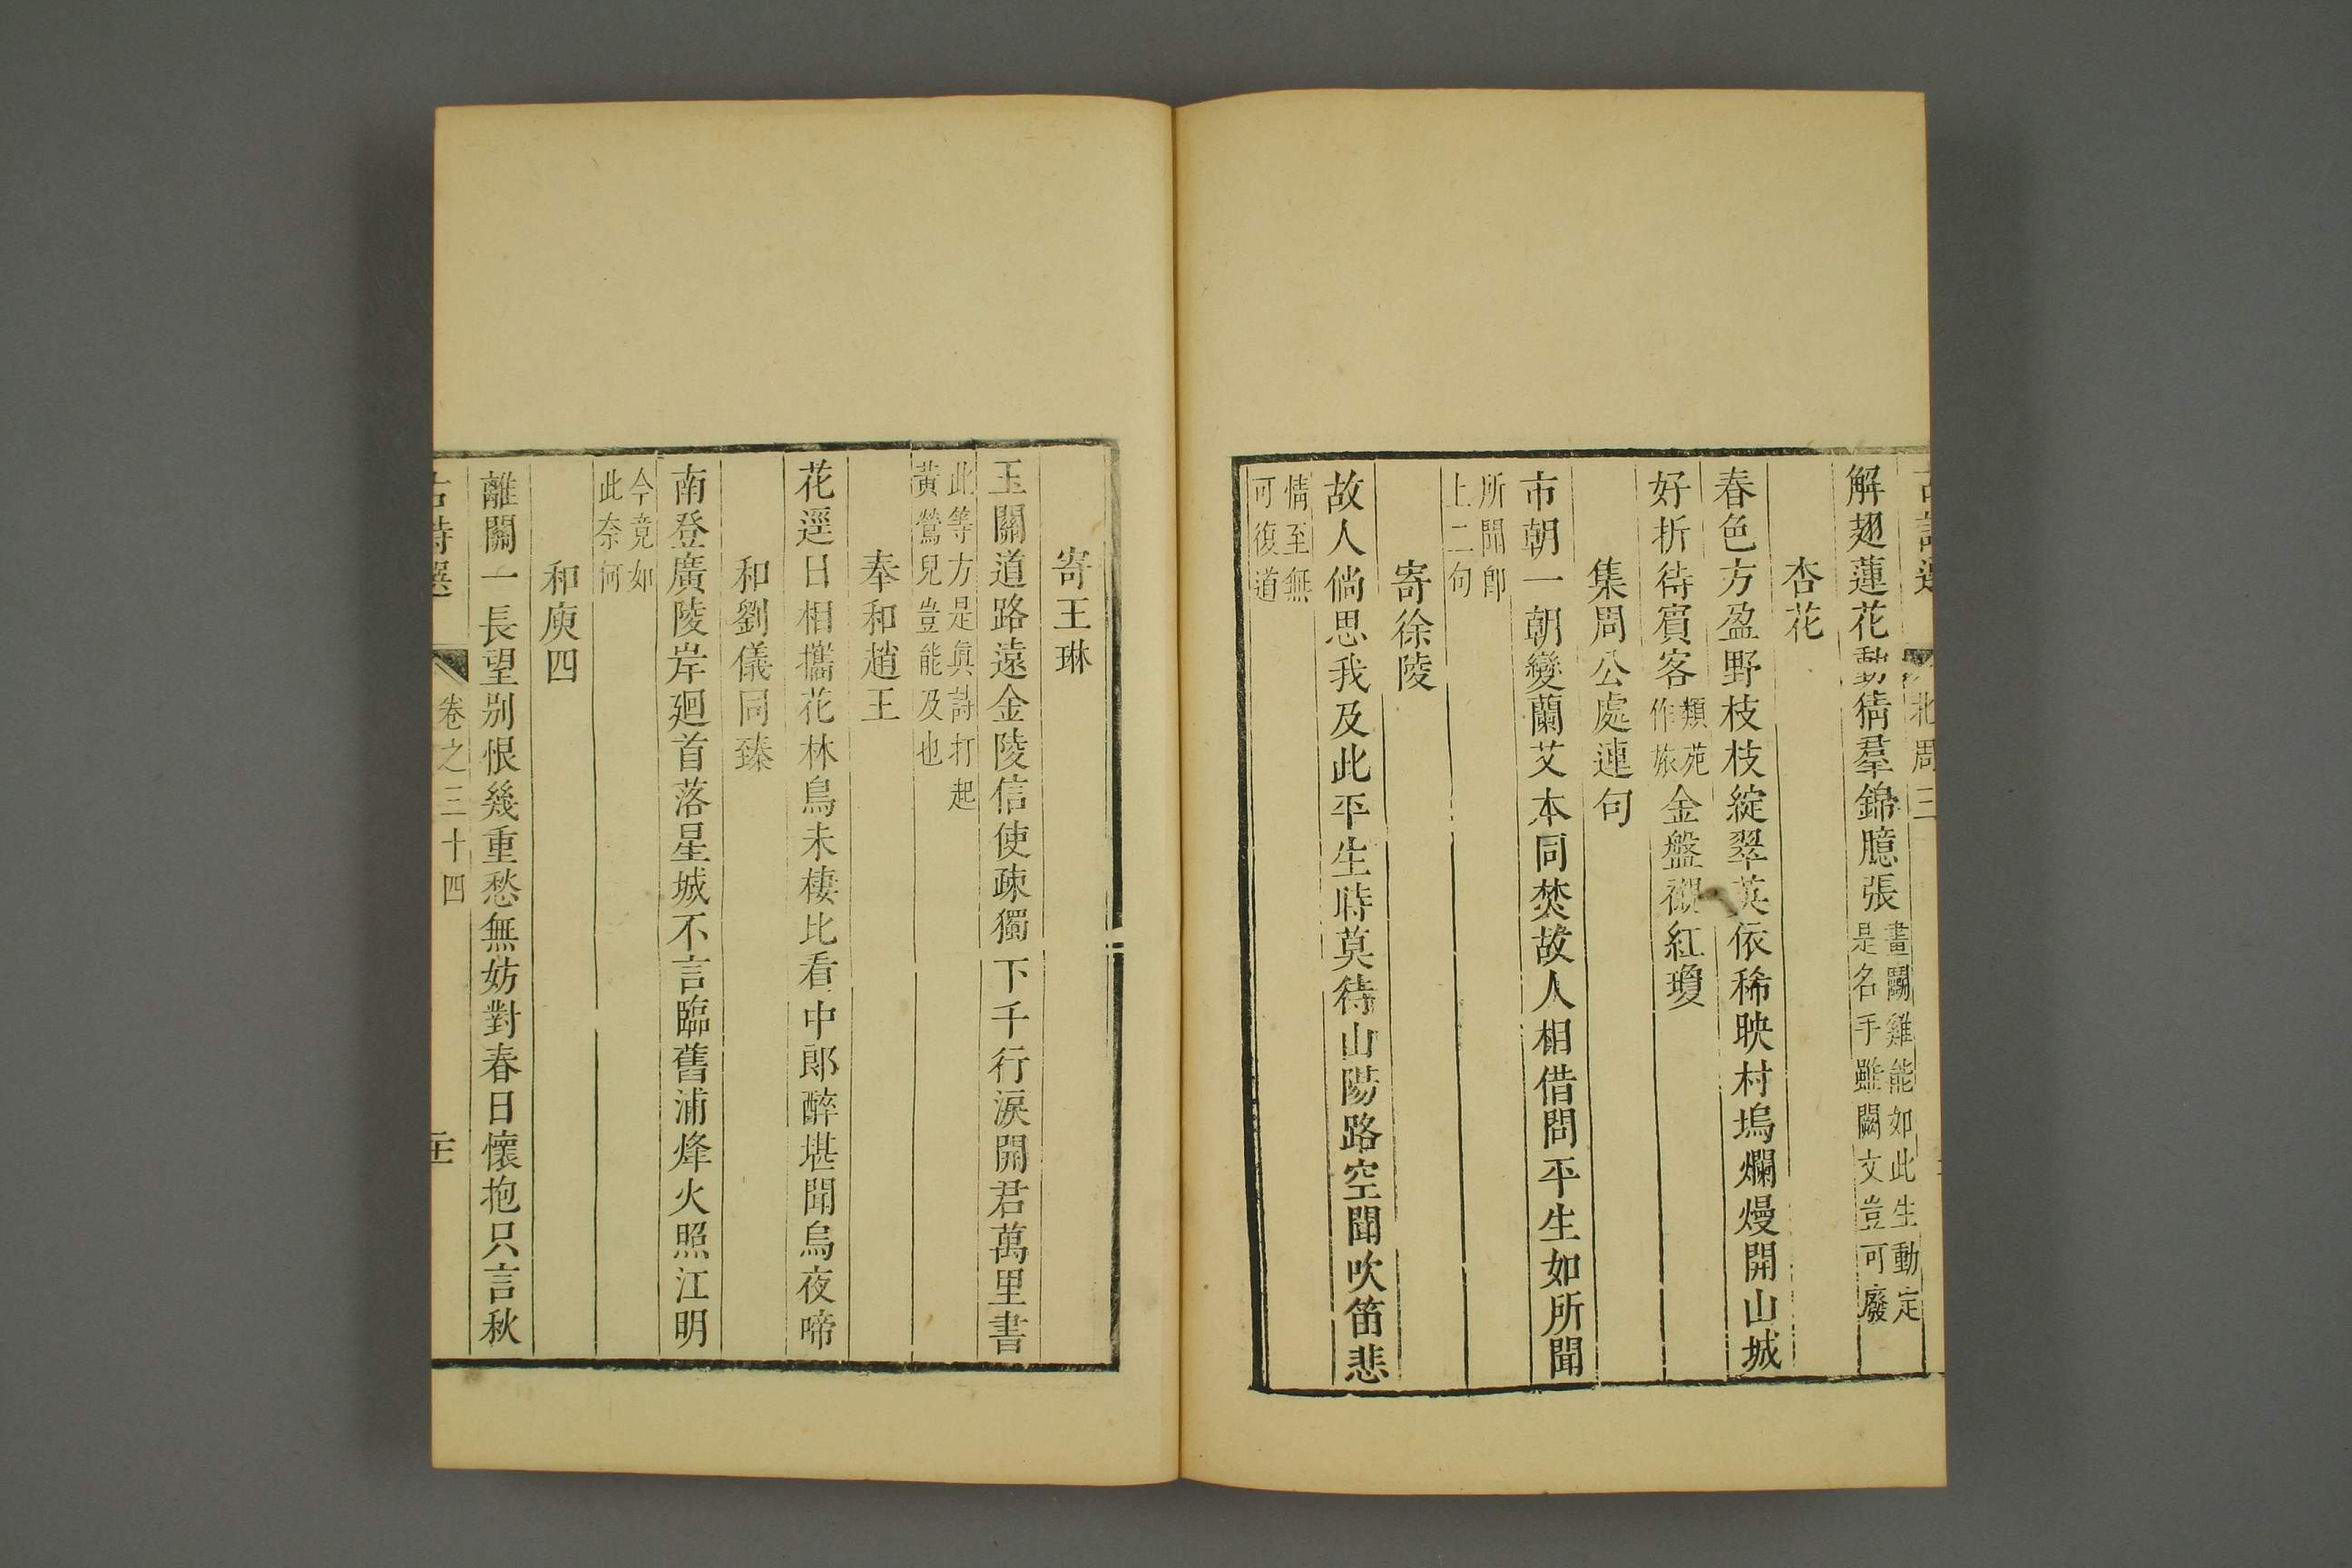 解翅蓮花動猜羣錦臆張畫鬭雞能如此生動定是名手雖闕文豈可廢
杏花
春色方盈野枝枝綻翠英依稀映村塢爛熳開山城
好折待賓客類苑作旅金盤襯紅瓊
集周公處連句
市朝一朝變蘭艾本同焚故人相借問平生如所聞
所聞卽上二句
寄徐陵
故人倘思我及此平生時莫待山陽路空聞吹笛悲
情至無可復道
寄王琳
玉關道路遠金陵信使疎獨下千行淚開君萬里書
此等方是眞詩打起黃鶯兒豈能及也
奉和趙王
花逕日相攜花林鳥未棲比看中郎醉堪聞烏夜啼
和劉儀同臻
南登廣陵岸廻首落星城不言臨舊浦烽火照江明
今竟如此奈何
和庾四
離關一長望別恨幾重愁無妨對春日懷抱只言秋
古詩選 卷之三十四